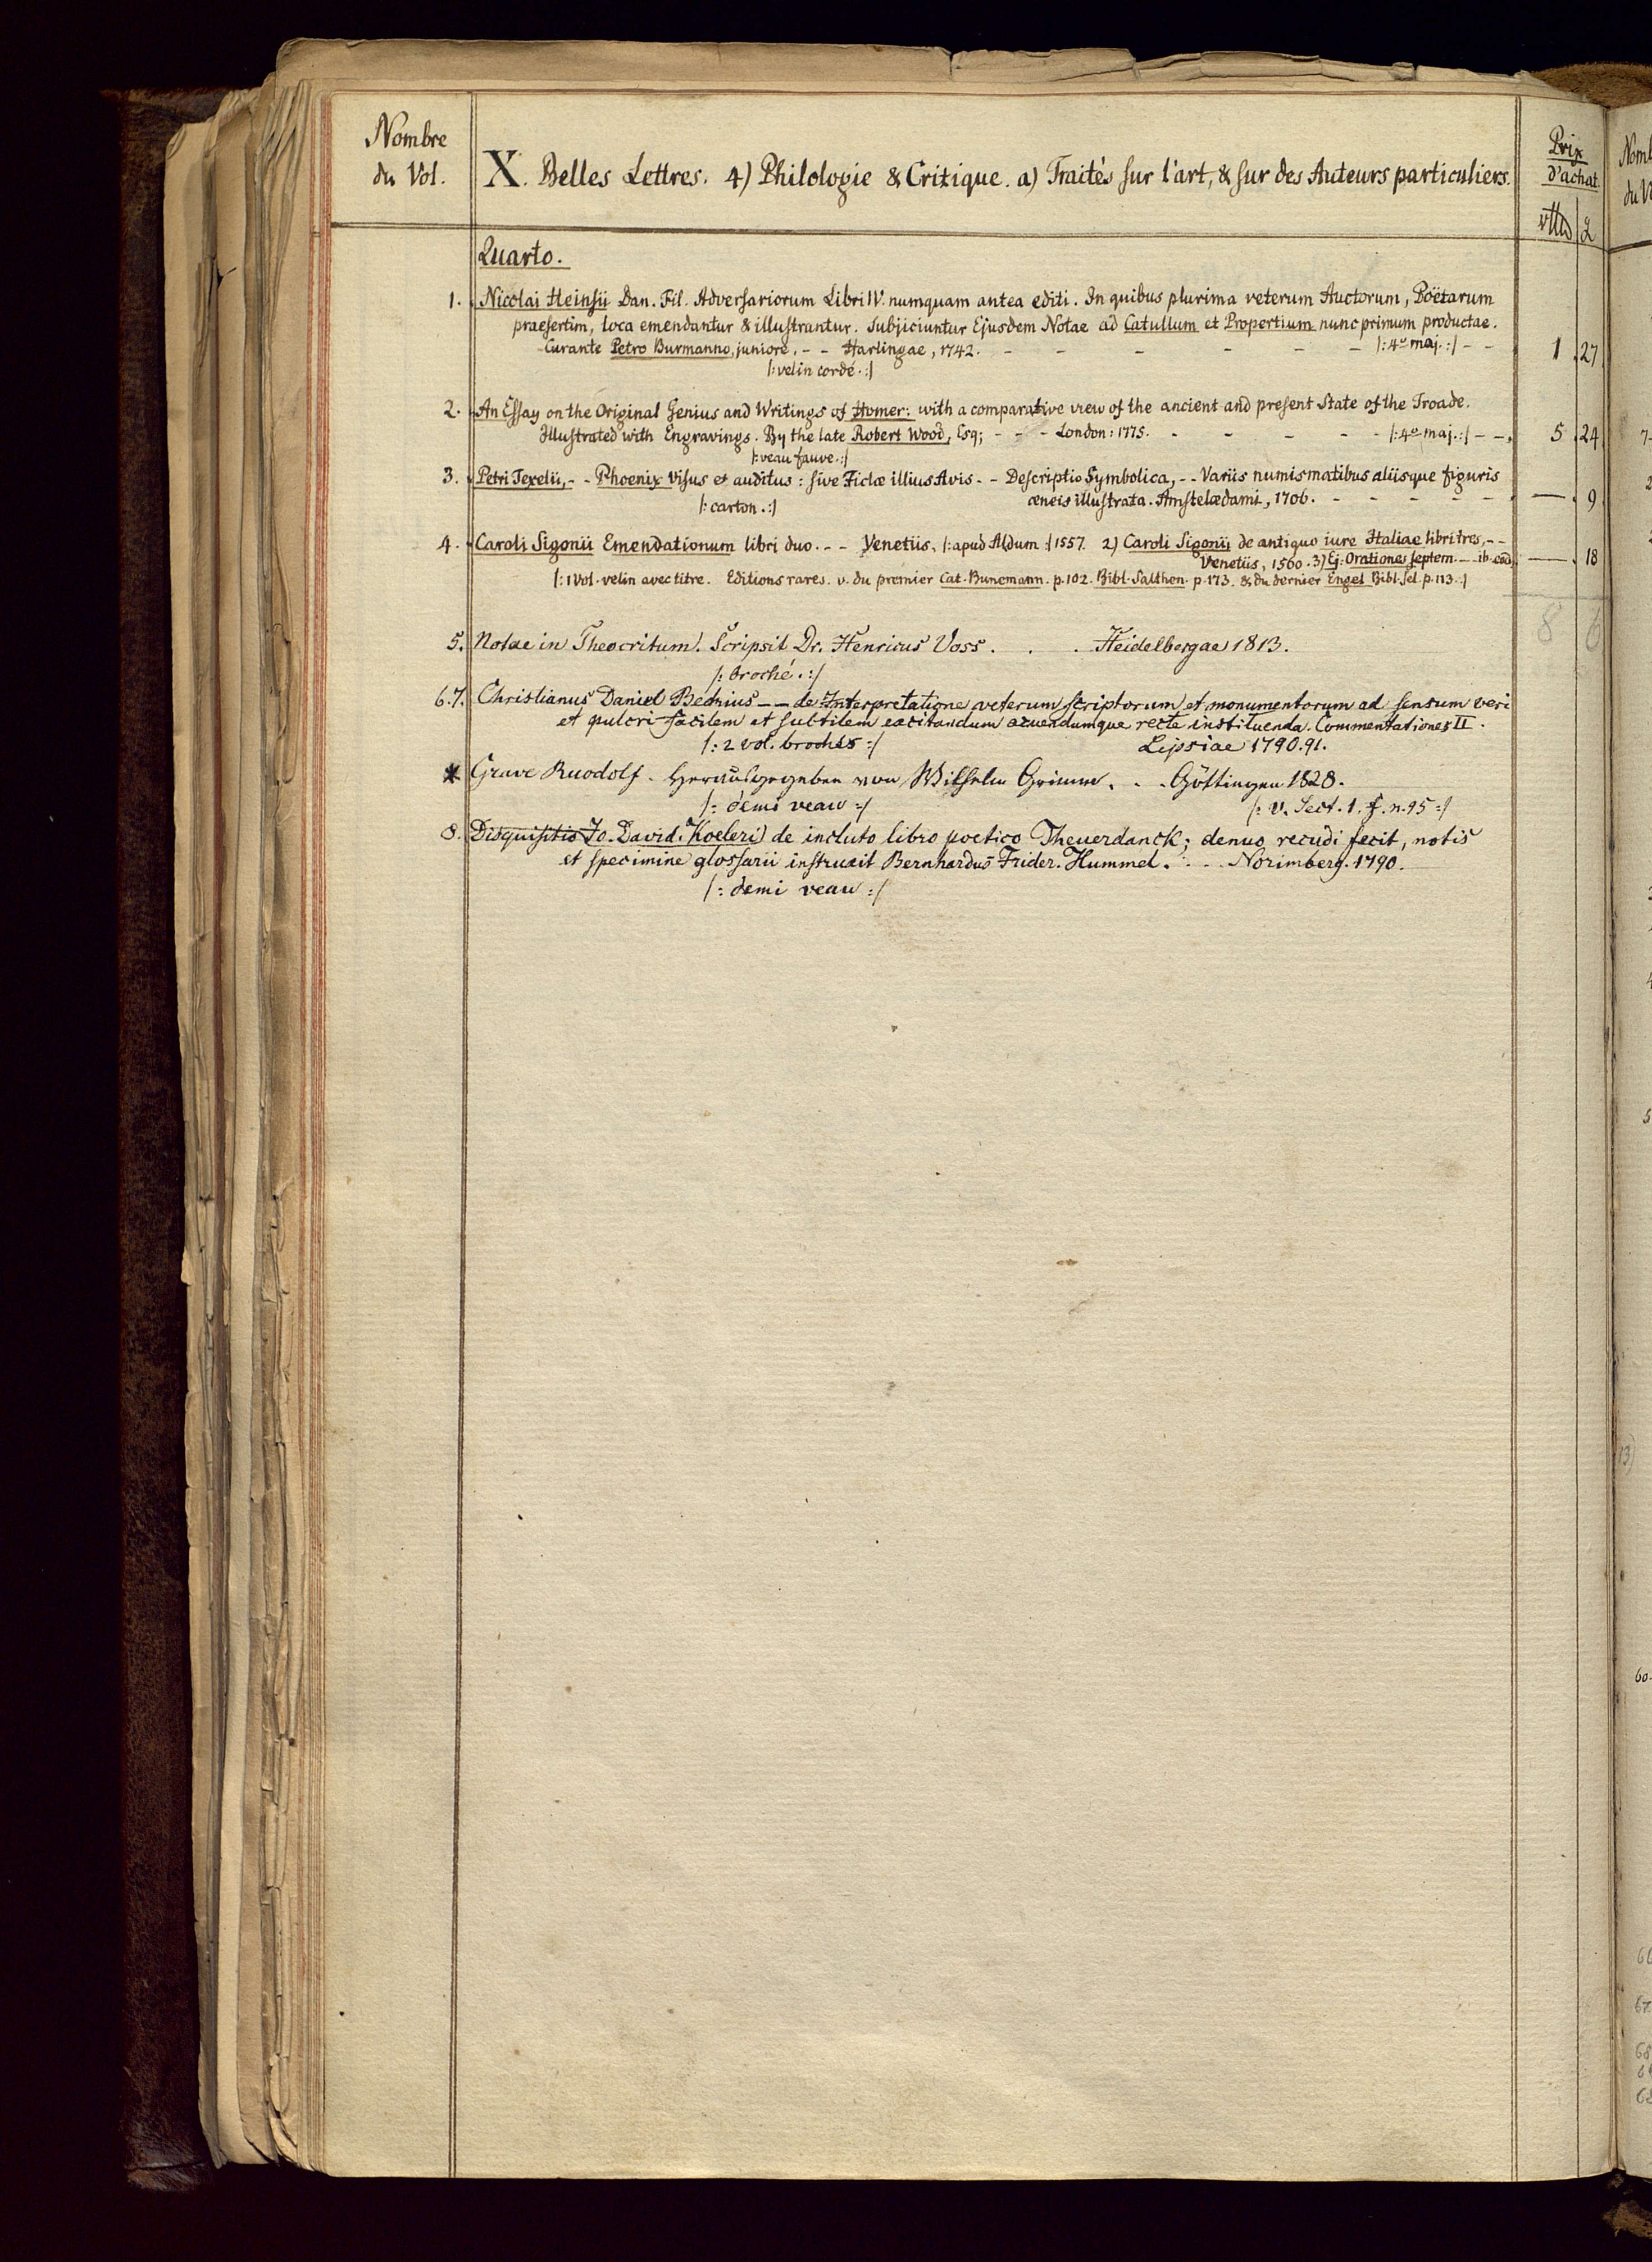 Nombre
du Vol.
X. Belles Lettres. 4) Philologie & Critique. a) Traités sur l'art, & sur des Auteurs particuliers.
Prix
d'achat.
Quarto.
1. Nicolai Heinsii Dan. Fil. Adversariorum Libri IV. numquam antea editi. In quibus plurima veterum Auctorum, Poëtarum
praesertim, loca emendantur & illustrantur. Subjiciuntur Ejusdem Notae ad Catullum et Propertium nunc primum productae.
Curante Petro Burmanno, juniore. - - Harlingae, 1742. - - - - - - /: 4º maj. :/ - - 1 27
/: velin cordé. :/
2. An Essay on the Original Genius and Writings of Homer: with a comparative view of the ancient and present State of the Troade.
Illustrated with Engravings. By the late Robert Wood, Esq; - - - London: 1775. - - - - - /: 4º maj. :/ - - 5 24
/: veau fauve. :/
3. Petri Texelii, - - Phoenix visus et auditus: sive Fictæ illius Avis - - Descriptio Symbolica, - - Variis numismatibus aliisque figuris
æneis illustrata. Amstelædami, 1706. - - - - - — 9
/: carton. :/
4. Caroli Sigonii Emendationum libri duo. - - Venetiis, /: apud Aldum :/ 1557. 2) Caroli Sigonii de antiquo iure Italiae libri tres, - -
Venetiis, 1560. 3) Ej. Orationes septem. - - ib. eod. — 18
/: 1 Vol. velin avec titre. Editions rares. v. du premier Cat. Bunemann. p. 102. Bibl. Salthen. p. 173. & du dernier Engel Bibl. sel. p. 113. :/
8 6
5. Notae in Theocritum. Scripsit Dr. Henricus Voss. . . . Heidelbergae 1813.
/: broché. :/
6.7. Christianus Daniel Beckius - - de Interpretatione veterum scriptorum et monumentorum ad sensum veri
et pulcri facilem et subtilem excitandum acuendumque recte instituenda. Commentationes II.
/: 2 vol. brochés :/ Lipsiae 1790. 91.
* Grave Ruodolf. Herausgegeben von Wilhelm Grimm. . . Göttingen 1828.
/: demi veau :/ /: v. Sect. 1. f. n. 95 :/
8. Disquisitio Jo. David. Koeleri de incluto libro poetico Theuerdanck; denuo recudi fecit, notis
et specimine glossarii instruxit Bernhardus Frider. Hummel. . . . Norimberg. 1790.
/: demi veau :/